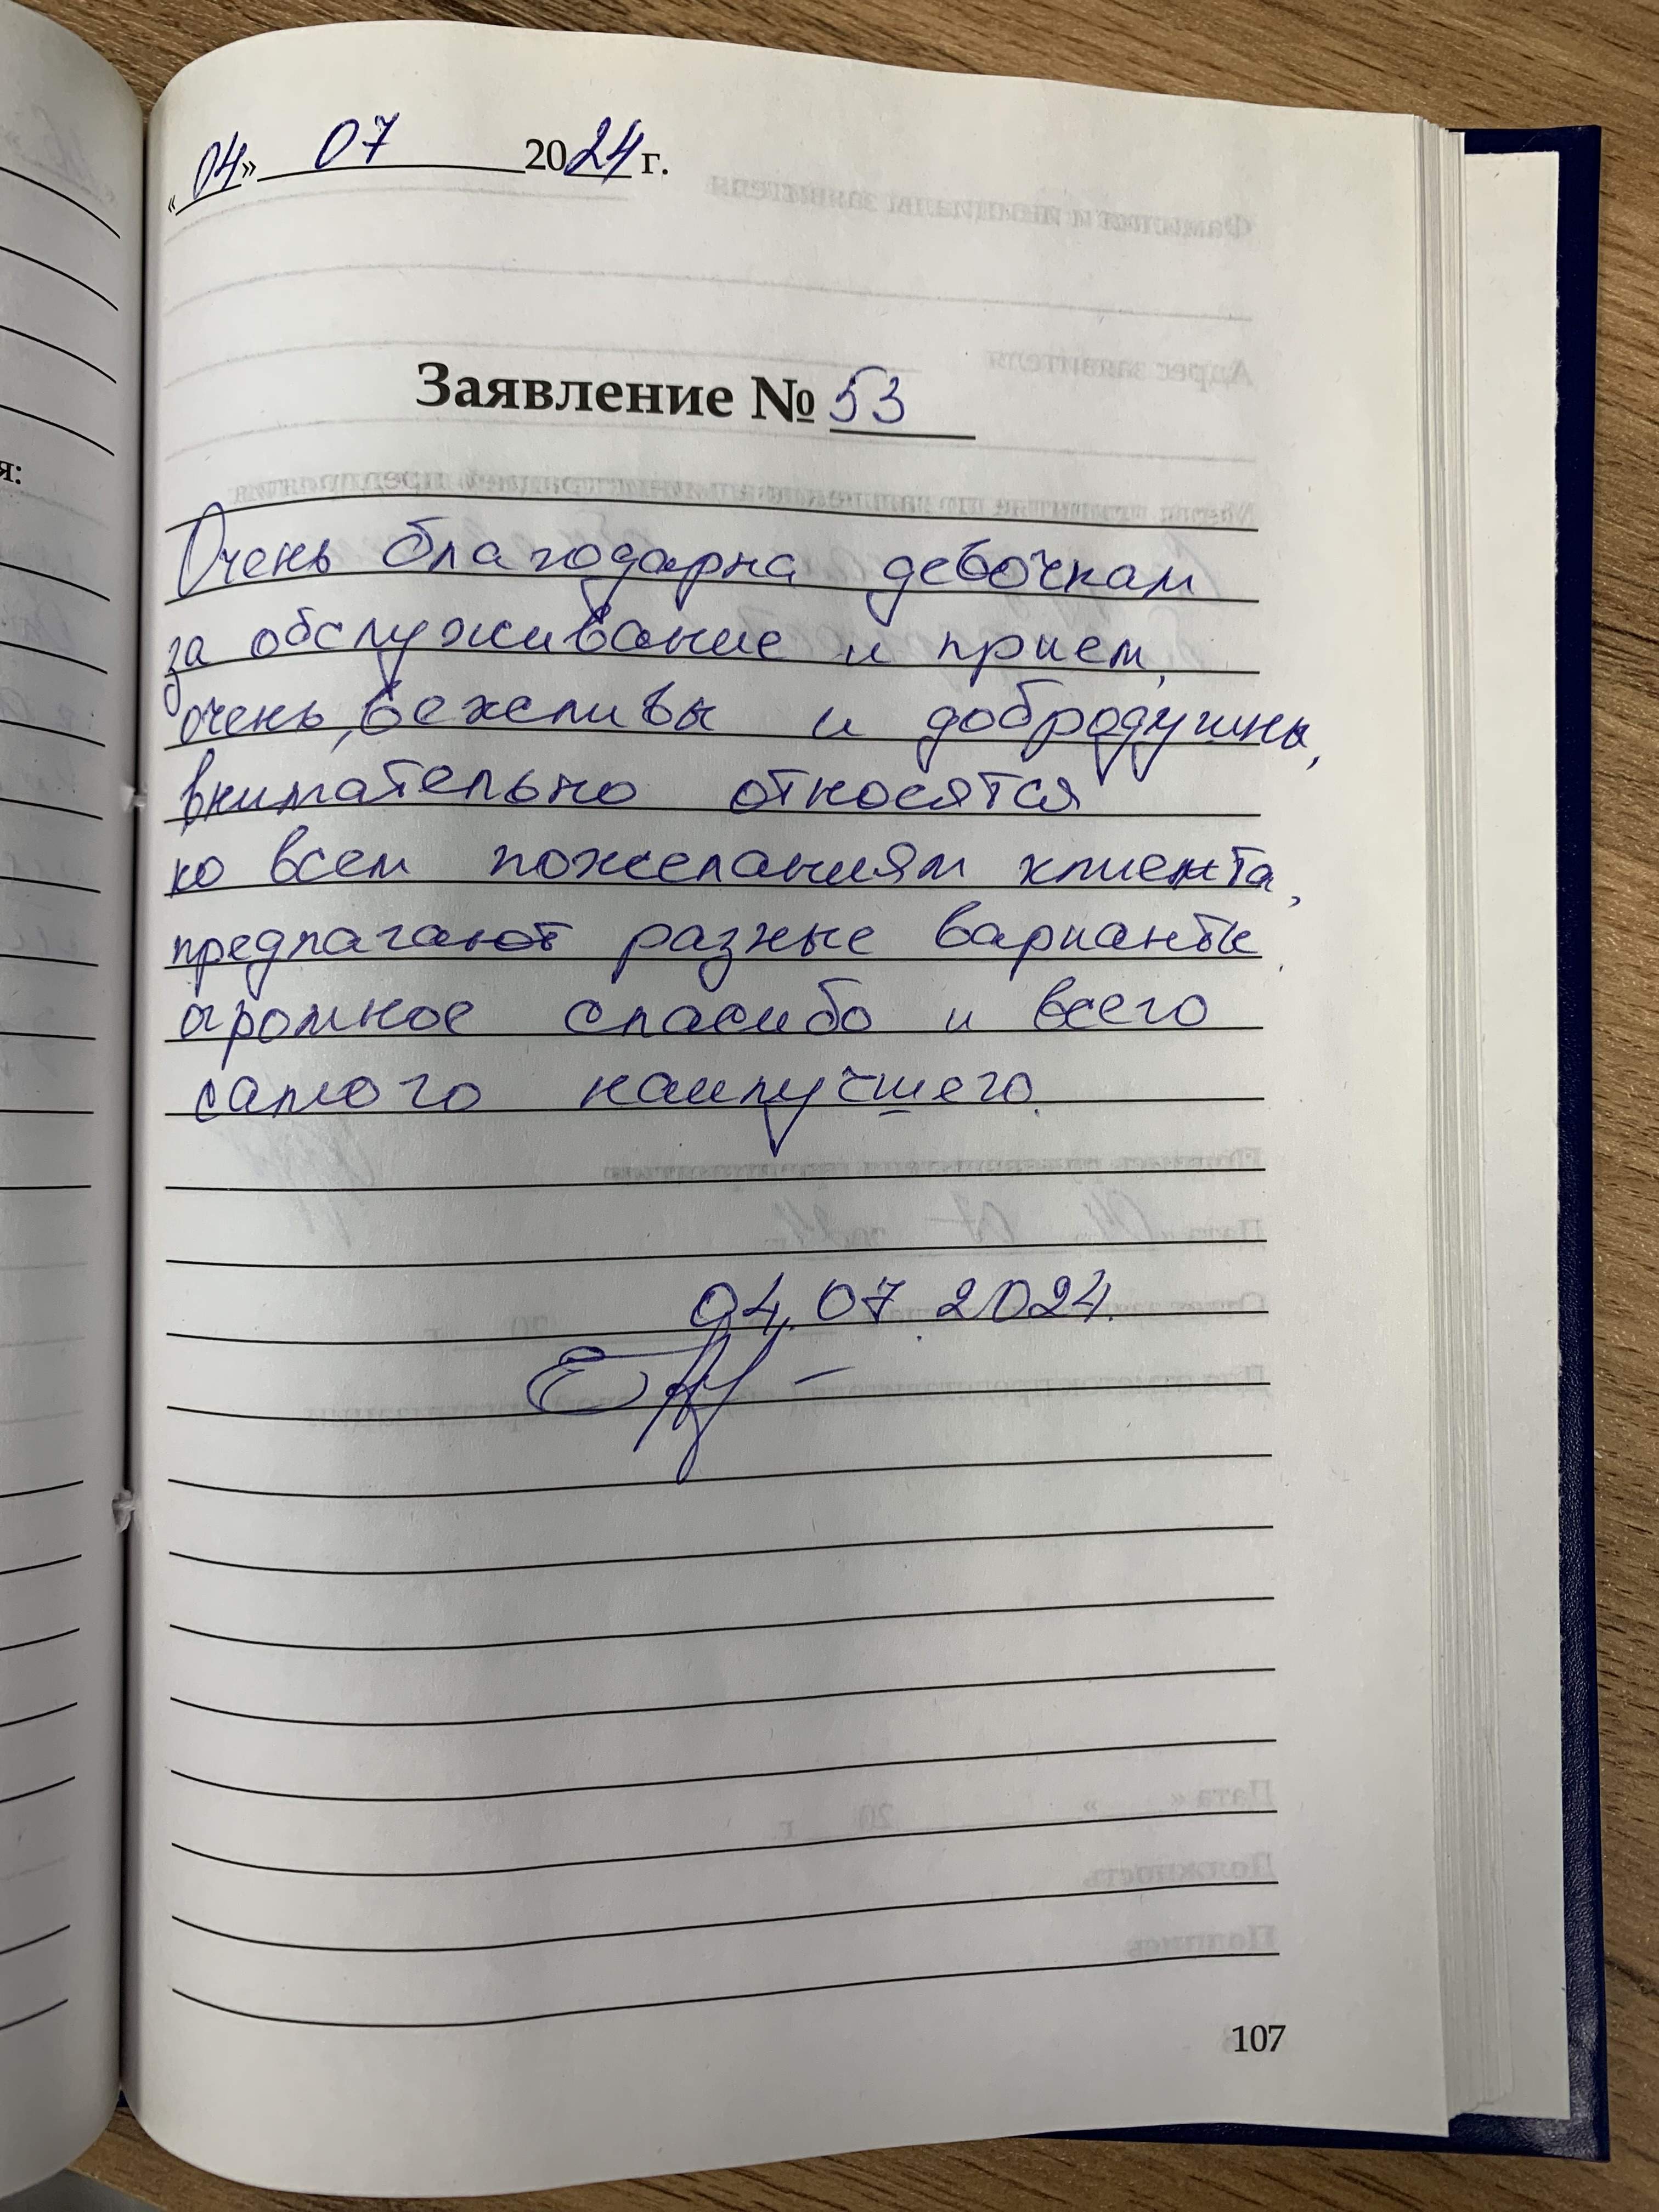 «04» 07 2024 г.
Заявление № 53
я:
Очень благодарна девочкам
за обслуживание и прием,
очень, вежливы и добродушны,
внимательно относятся
ко всем пожеланиям клиента,
предлагают разные варианты.
огромное спасибо и всего
самого наилучшего.
04.07.2024.
107